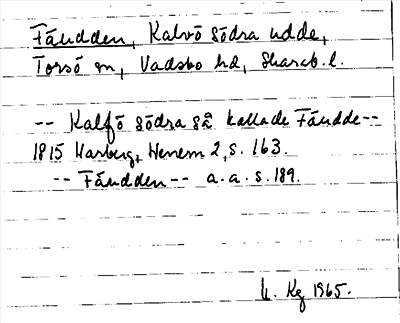 Fäudden, Kalvö Södra udde,
Torsö sn, Vadsbo hd, Skarab.l.
-- Kalfö Södra så kallade Fäudde--
1815 Warberg, Wenern 2, s. 163.
-- Fäudden -- a.a. s. 189.
Kg 1965.